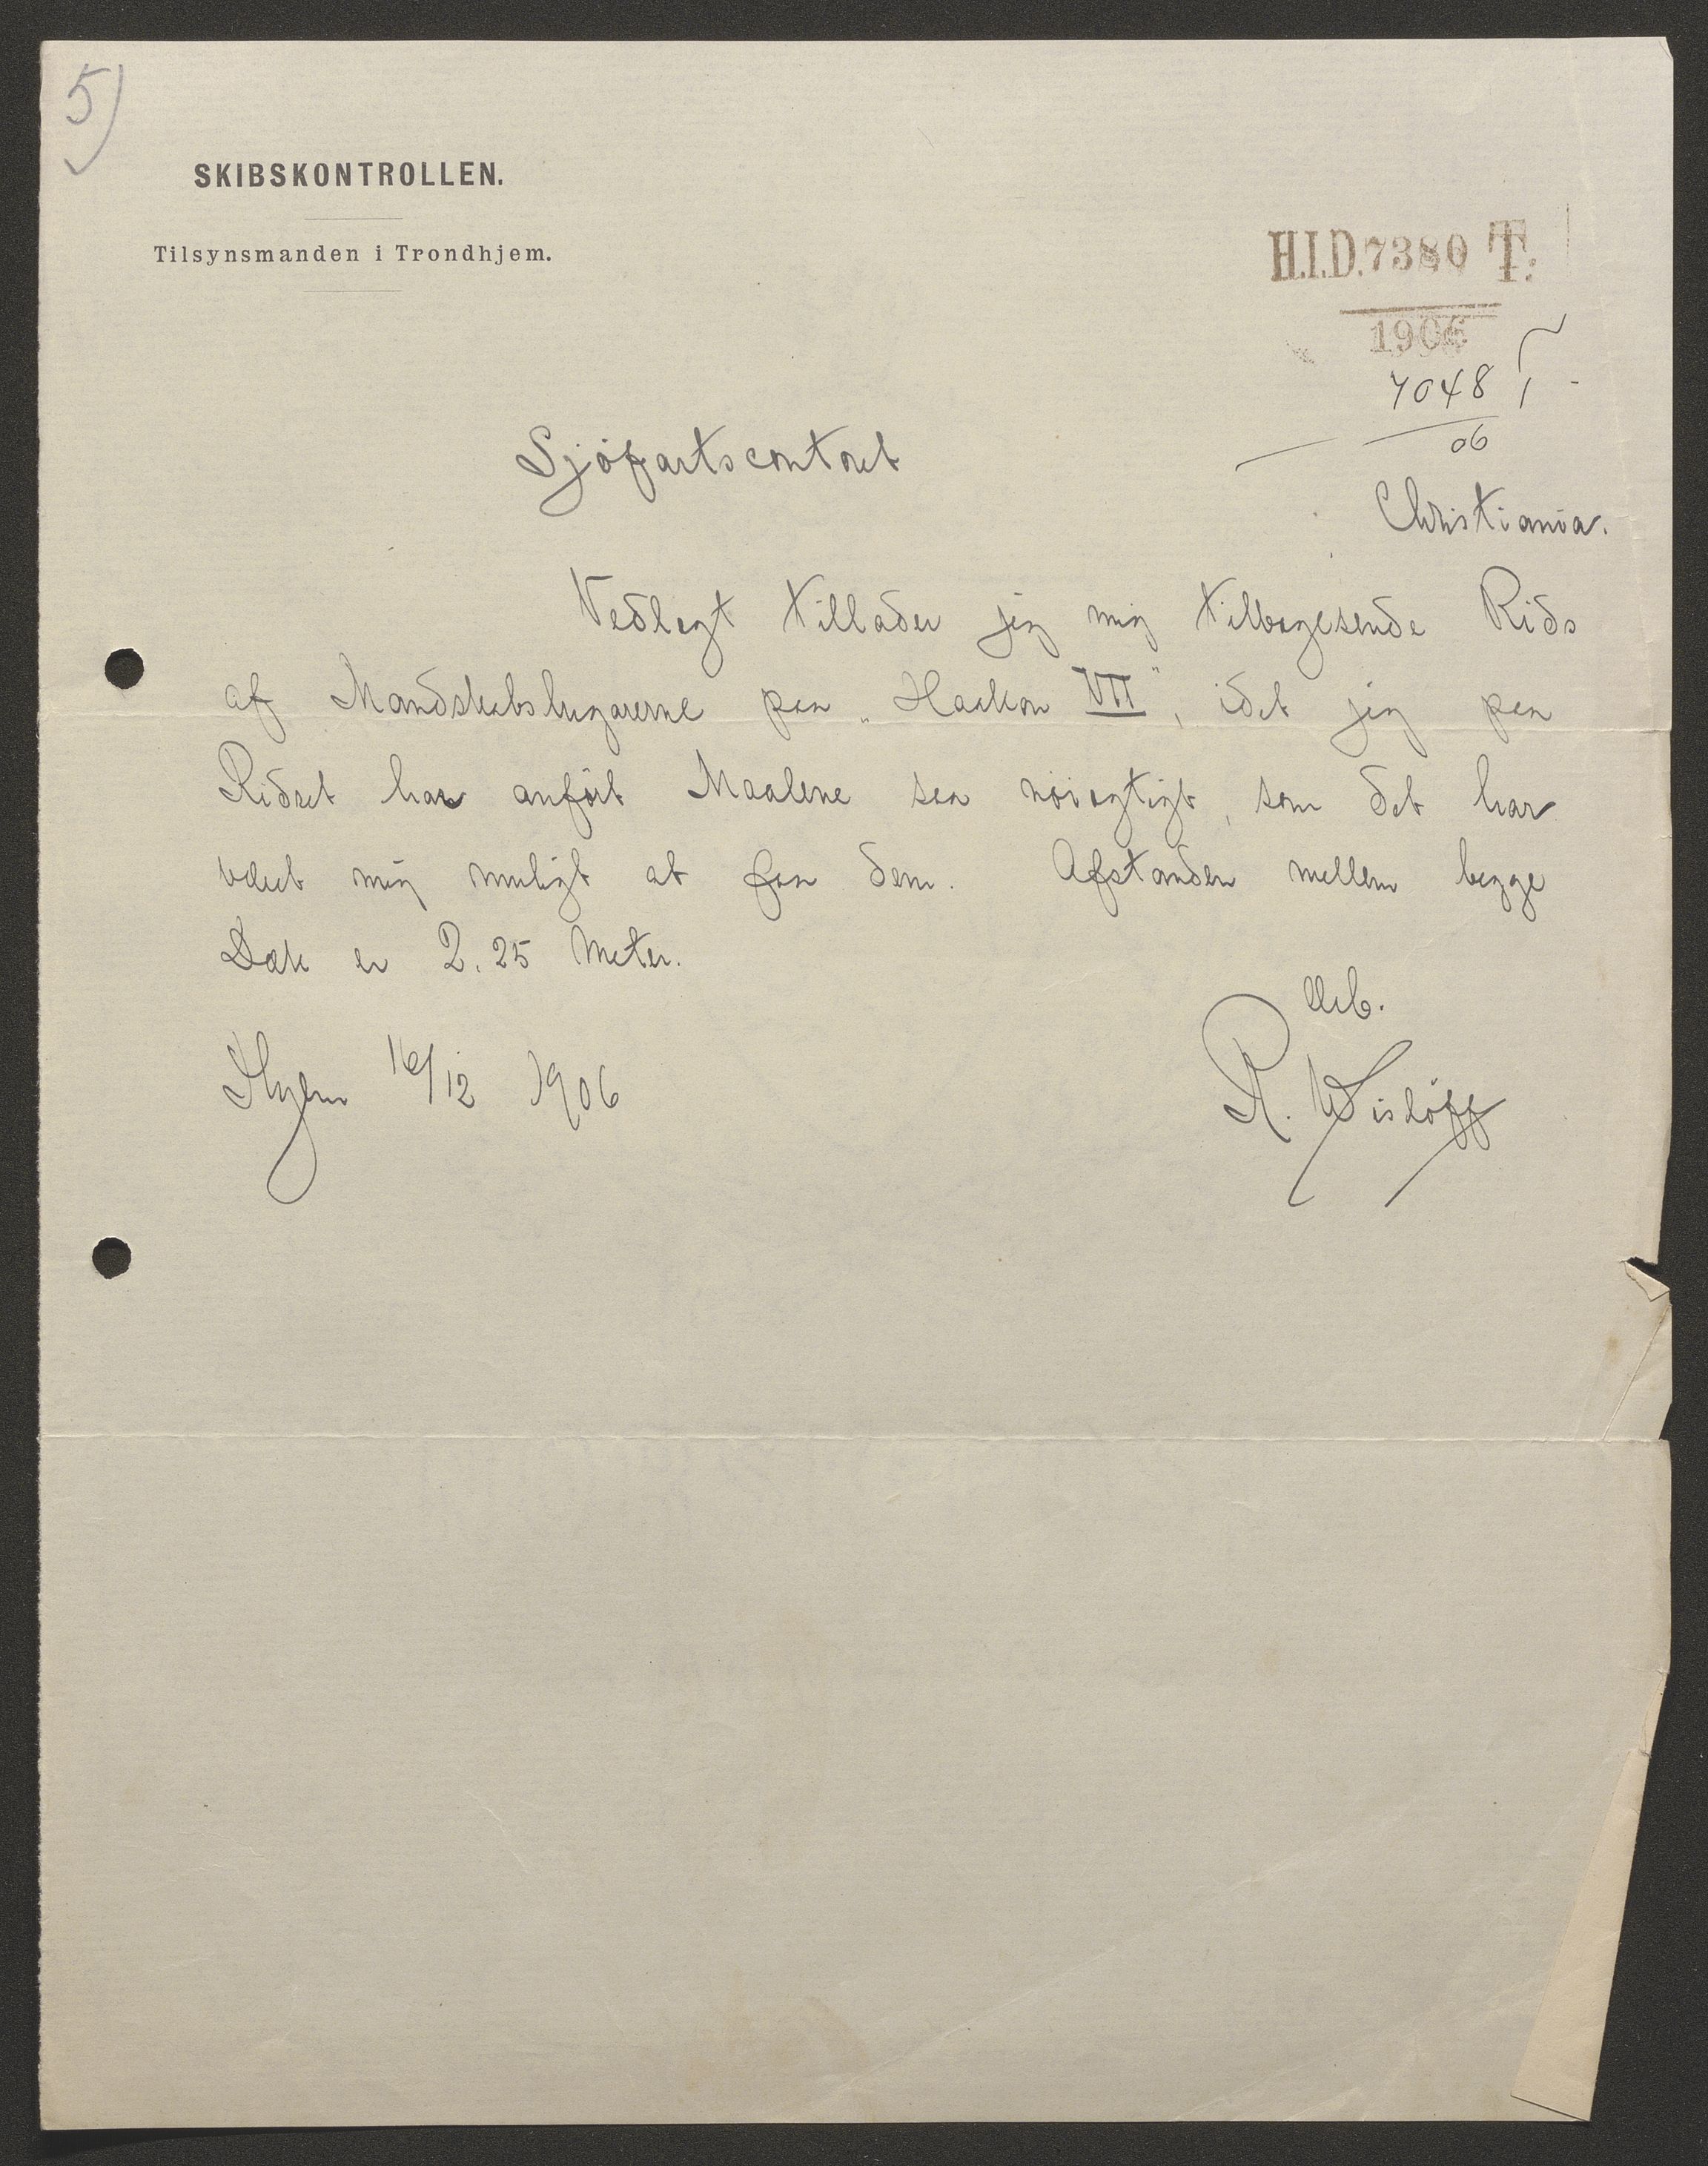 5)
SKIBSKONTROLLEN.
Tilsynsmanden i Trondhjem.
H.I.D. 7380 T.
1906
7048
06
Sjöfartscontoret
Christiania.
Vedlagt tillader jeg mig tilbagesende Rids
af Mandskabslugarerne paa „Haakon VII", idet jeg paa
Ridset har anført Maalene saa nöiagtigt, som det har
været mig muligt at faa dem. Afstanden mellem begge
Dæk er 2.25 Meter.
Ærb.
Thjem 16/12 1906
R. Wislöff